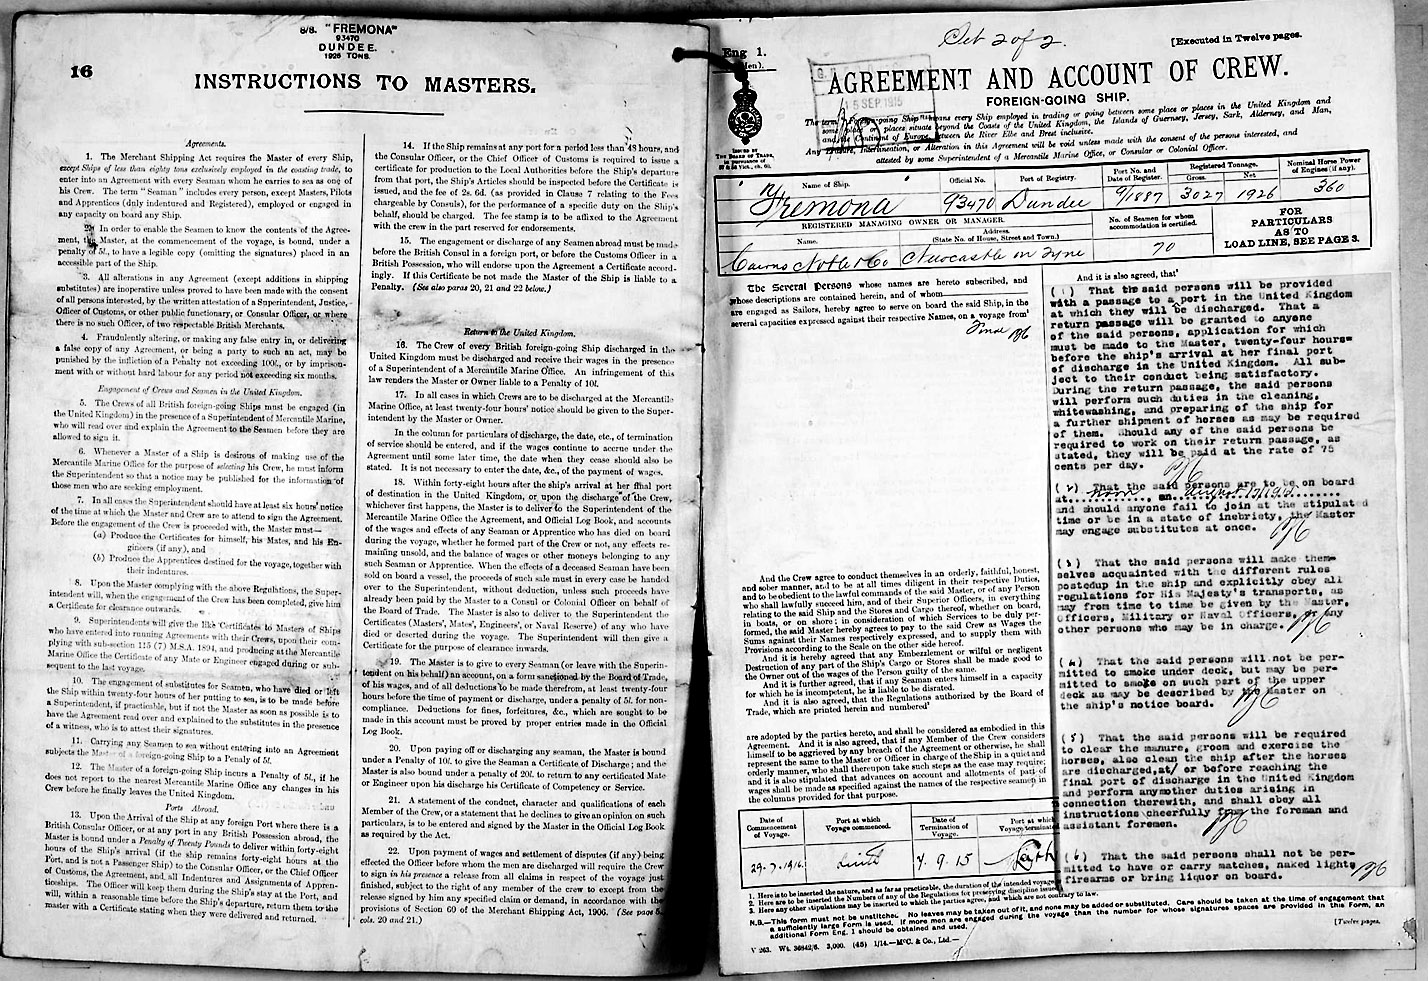 8/8. "FREMONA"
93470
DUNDEE.
1925 TONS.
16
INSTRUCTIONS TO MASTERS.
Agreements.
1. The Merchant Shipping Act requires the Master of every Ship,
except Ships of less than eighty tons exclusively employed in the coasting trade, to
enter into an Agreement with every Seaman whom he carries to sea as one of
his Crew. The term "Seaman" includes every person, except Masters, Pilots
and Apprentices (duly indentured and Registered), employed or engaged in
any capacity on board any Ship.
2. In order to enable the Seamen to know the contents of the Agree-
ment, the Master, at the commencement of the voyage, is bound, under a
penalty of 5l., to have a legible copy (omitting the signatures) placed in an
accessible part of the Ship.
3. All alterations in any Agreement (except additions in shipping
substitutes) are inoperative unless proved to have been made with the consent
of all persons interested, by the written attestation of a Superintendent, Justice,
Officer of Customs, or other public functionary, or Consular Officer, or where
there is no such Officer, of two respectable British Merchants.
4. Fraudulently altering, or making any false entry in, or delivering
a false copy of any Agreement, or being a party to such an act, may be
punished by the infliction of a Penalty not exceeding 100l., or by imprison-
ment with or without hard labour for any period not exceeding six months.
Engagement of Crews and Seamen in the United Kingdom.
5. The Crews of all British foreign-going Ships must be engaged (in
the United Kingdom) in the presence of a Superintendent of Mercantile Marine,
who will read over and explain the Agreement to the Seamen before they are
allowed to sign it.
6. Whenever a Master of a Ship is desirous of making use of the
Mercantile Marine Office for the purpose of selecting his Crew, he must inform
the Superintendent so that a notice may be published for the information of
those men who are seeking employment.
7. In all cases the Superintendent should have at least six hours' notice
of the time at which the Master and Crew are to attend to sign the Agreement.
Before the engagement of the Crew is proceeded with, the Master must—
(a) Produce the Certificates for himself, his Mates, and his En-
gineers (if any), and
(b) Produce the Apprentices destined for the voyage, together with
their indentures.
8. Upon the Master complying with the above Regulations, the Super-
intendent will, when the engagement of the Crew has been completed, give him
a Certificate for clearance outwards.
9. Superintendents will give the like Certificates to Masters of Ships
who have entered into running Agreements with their Crews, upon their com-
plying with sub-section 115 (7) M.S.A. 1894, and producing at the Mercantile
Marine Office the Certificate of any Mate or Engineer engaged during or sub-
sequent to the last voyage.
10. The engagement of substitutes for Seamen, who have died or left
the Ship within twenty-four hours of her putting to sea, is to be made before
a Superintendent, if practicable, but if not the Master as soon as possible is to
have the Agreement read over and explained to the substitutes in the presence
of a witness, who is to attest their signatures.
11. Carrying any Seamen to sea without entering into an Agreement
subjects the Master of a foreign-going Ship to a Penalty of 5l.
12. The Master of a foreign-going Ship incurs a Penalty of 5l., if he
does not report to the nearest Mercantile Marine Office any changes in his
Crew before he finally leaves the United Kingdom.
Ports Abroad.
13. Upon the Arrival of the Ship at any foreign Port where there is a
British Consular Officer, or at any port in any British Possession abroad, the
Master is bound under a Penalty of Twenty Pounds to deliver within forty-eight
hours of the Ship's arrival (if the ship remains forty-eight hours at the
Port, and is not a Passenger Ship) to the Consular Officer, or the Chief Officer
of Customs, the Agreement, and all Indentures and Assignments of Appren-
ticeships. The Officer will keep them during the Ship's stay at the Port, and
will, within a reasonable time before the Ship's departure, return them to the
master with a Certificate stating when they were delivered and returned.
14. If the Ship remains at any port for a period less than 48 hours, and
the Consular Officer, or the Chief Officer of Customs is required to issue a
certificate for production to the Local Authorities before the Ship's departure
from that port, the Ship's Articles should be inspected before the Certificate is
issued, and the fee of 2s. 6d. (as provided in Clause 7 relating to the Fees
chargeable by Consuls), for the performance of a specific duty on the Ship's
behalf, should be charged. The fee stamp is to be affixed to the Agreement
with the crew in the part reserved for endorsements.
15. The engagement or discharge of any Seamen abroad must be made
before the British Consul in a foreign port, or before the Customs Officer in a
British Possession, who will endorse upon the Agreement a Certificate accord-
ingly. If this Certificate be not made the Master of the Ship is liable to a
Penalty. (See also paras 20, 21 and 22 below.)
Return to the United Kingdom.
16. The Crew of every British foreign-going Ship discharged in the
United Kingdom must be discharged and receive their wages in the presence
of a Superintendent of a Mercantile Marine Office. An infringement of this
law renders the Master or Owner liable to a Penalty of 10l.
17. In all cases in which Crews are to be discharged at the Mercantile
Marine Office, at least twenty-four hours' notice should be given to the Super-
intendent by the Master or Owner.
In the column for particulars of discharge, the date, etc., of termination
of service should be entered, and if the wages continue to accrue under the
Agreement until some later time, the date when they cease should also be
stated. It is not necessary to enter the date, &c., of the payment of wages.
18. Within forty-eight hours after the ship's arrival at her final port
of destination in the United Kingdom, or upon the discharge of the Crew,
whichever first happens, the Master is to deliver to the Superintendent of the
Mercantile Marine Office the Agreement, and Official Log Book, and accounts
of the wages and effects of any Seaman or Apprentice who has died on board
during the voyage, whether he formed part of the Crew or not, any effects re-
maining unsold, and the balance of wages or other moneys belonging to any
such Seaman or Apprentice. When the effects of a deceased Seaman have been
sold on board a vessel, the proceeds of such sale must in every case be handed
over to the Superintendent, without deduction, unless such proceeds have
already been paid by the Master to a Consul or Colonial Officer on behalf of
the Board of Trade. The Master is also to deliver to the Superintendent the
Certificates (Masters', Mates', Engineers', or Naval Reserve) of any who have
died or deserted during the voyage. The Superintendent will then give a
Certificate for the purpose of clearance inwards.
19. The Master is to give to every Seaman (or leave with the Superin-
tendent on his behalf) an account, on a form sanctioned by the Board of Trade,
of his wages, and of all deductions to be made therefrom, at least twenty-four
hours before the time of payment or discharge, under a penalty of 5l. for non-
compliance. Deductions for fines, forfeitures, &c., which are sought to be
made in this account must be proved by proper entries made in the Official
Log Book.
20. Upon paying off or discharging any seaman, the Master is bound
under a Penalty of 10l. to give the Seaman a Certificate of Discharge; and the
Master is also bound under a penalty of 20l. to return to any certificated Mate
or Engineer upon his discharge his Certificate of Competency or Service.
21. A statement of the conduct, character and qualifications of each
Member of the Crew, or a statement that he declines to give an opinion on such
particulars, is to be entered and signed by the Master in the Official Log Book
as required by the Act.
22. Upon payment of wages and settlement of disputes (if any) being
effected the Officer before whom the men are discharged will require the Crew
to sign in his presence a release from all claims in respect of the voyage just
finished, subject to the right of any member of the crew to except from the
release signed by him any specified claim or demand, in accordance with the
provisions of Section 60 of the Merchant Shipping Act, 1906. (See page 5,
cols. 20 and 21.)
Eng 1.
Oct 2 of 2.
[Executed in Twelve pages.
AGREEMENT AND ACCOUNT OF CREW.
FOREIGN-GOING SHIP.
15 SEP 1915
The term "Foreign-going Ship" means every Ship employed in trading or going between some place or places in the United Kingdom and
some place or places situate beyond the Coasts of the United Kingdom, the Islands of Guernsey, Jersey, Sark, Alderney, and Man,
and the Continent of Europe between the River Elbe and Brest inclusive.
Any Erasure, Interlineation, or Alteration in this Agreement will be void unless made with the consent of the persons interested, and
attested by some Superintendent of a Mercantile Marine Office, or Consular or Colonial Officer.
ISSUED BY
THE BOARD OF TRADE,
Name of Ship. Official No. Port of Registry. Port No. and Date of Register. Registered Tonnage. Gross. Net Nominal Horse Power of Engines (if any).
Fremona 93470 Dundee 9/1887 3027 1926 360
REGISTERED MANAGING OWNER OR MANAGER.
Name. Address. (State No. of House, Street and Town.) No. of Seamen for whom accommodation is certified.
Cairns Noble & Co Newcastle on Tyne 70
FOR
PARTICULARS
AS TO
LOAD LINE, SEE PAGE 3.
The Several Persons whose names are hereto subscribed, and
whose descriptions are contained herein, and of whom
are engaged as Sailors, hereby agree to serve on board the said Ship, in the
several capacities expressed against their respective Names, on a voyage from
And the Crew agree to conduct themselves in an orderly, faithful, honest,
and sober manner, and to be at all times diligent in their respective Duties,
and to be obedient to the lawful commands of the said Master, or of any Person
who shall lawfully succeed him, and of their Superior Officers, in everything
relating to the said Ship and the Stores and Cargo thereof, whether on board,
in boats, or on shore; in consideration of which Services to be duly per-
formed, the said Master hereby agrees to pay to the said Crew as Wages the
Sums against their Names respectively expressed, and to supply them with
Provisions according to the Scale on the other side hereof.
And it is hereby agreed that any Embezzlement or wilful or negligent
Destruction of any part of the Ship's Cargo or Stores shall be made good to
the Owner out of the Wages of the Person guilty of the same.
And it is further agreed, that if any Seaman enters himself in a capacity
for which he is incompetent, he is liable to be disrated.
And it is also agreed, that the Regulations authorized by the Board of
Trade, which are printed herein and numbered
are adopted by the parties hereto, and shall be considered as embodied in this
Agreement. And it is also agreed, that if any Member of the Crew considers
himself to be aggrieved by any breach of the Agreement or otherwise, he shall
represent the same to the Master or Officer in charge of the Ship in a quiet and
orderly manner, who shall thereupon take such steps as the case may require;
and it is also stipulated that advances on account and allotments of part of
wages shall be made as specified against the names of the respective seamen in
the columns provided for that purpose.
And it is also agreed, that
(1) That the said persons will be provided
with a passage to a port in the United Kingdom
at which they will be discharged. That a
return passage will be granted to anyone
of the said persons, application for which
must be made to the Master, twenty-four hours
before the ship's arrival at her final port
of discharge in the United Kingdom. All sub-
ject to their conduct being satisfactory.
During the return passage, the said persons
will perform such duties in the cleaning,
whitewashing, and preparing of the ship for
a further shipment of horses as may be required
of them. Should any of the said persons be
required to work on their return passage, as
stated, they will be paid at the rate of 75
cents per day.
(2) That the said persons are to be on board
at noon on
and should anyone fail to join at the stipulated
time or be in a state of inebriety, the Master
may engage substitutes at once.
(3) That the said persons will make them-
selves acquainted with the different rules
postedup in the ship and explicitly obey all
regulations for His Majesty's transports, as
may from time to time be given by the Master,
Officers, Military or Naval Officers, or any
other persons who may be in charge.
(4) That the said persons will not be per-
mitted to smoke under deck, but may be per-
mitted to smoke on such part of the upper
deck as may be described by the Master on
the ship's notice board.
(5) That the said persons will be required
to clear the manure, groom and exercise the
horses, also clean the ship after the horses
are discharged, at/ or before reaching the
final port of discharge in the United Kingdom
and perform anymother duties arising in
connection therewith, and shall obey all
instructions cheerfully from the foreman and
assistant foremen.
(6) That the said persons shall not be per-
mitted to have or carry matches, naked lights
firearms or bring liquor on board.
Date of Commencement of Voyage. Port at which Voyage commenced. Date of Termination of Voyage. Port at which Voyage terminated
29.7.1916. Leith 7.9.15 Leith
1. Here is to be inserted the nature, and as far as practicable, the duration of the intended voyage
2. Here are to be inserted the Numbers of any of the Regulations for preserving discipline issued
3. Here any other stipulations may be inserted to which the parties agree, and which are not contrary to law.
N.B.—This form must not be unstitched. No leaves may be taken out of it, and none may be added or substituted. Care should be taken at the time of engagement that
a sufficiently large Form is used. If more men are engaged during the voyage than the number for whose signatures spaces are provided in this Form, an
additional Form Eng. 1 should be obtained and used.
V 263. Wt. 36842/6. 3,000. (45) 1/14.—McC. & Co., Ltd.—
[Twelve pages.